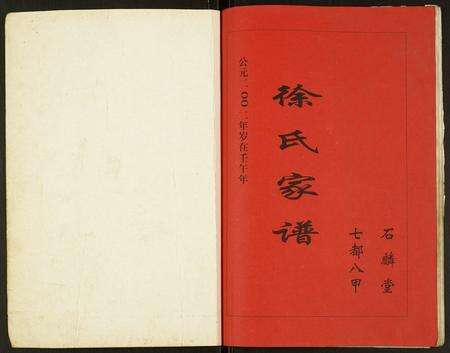 石麟堂
七都八甲
徐氏家谱
公元二〇〇二年岁在壬午年